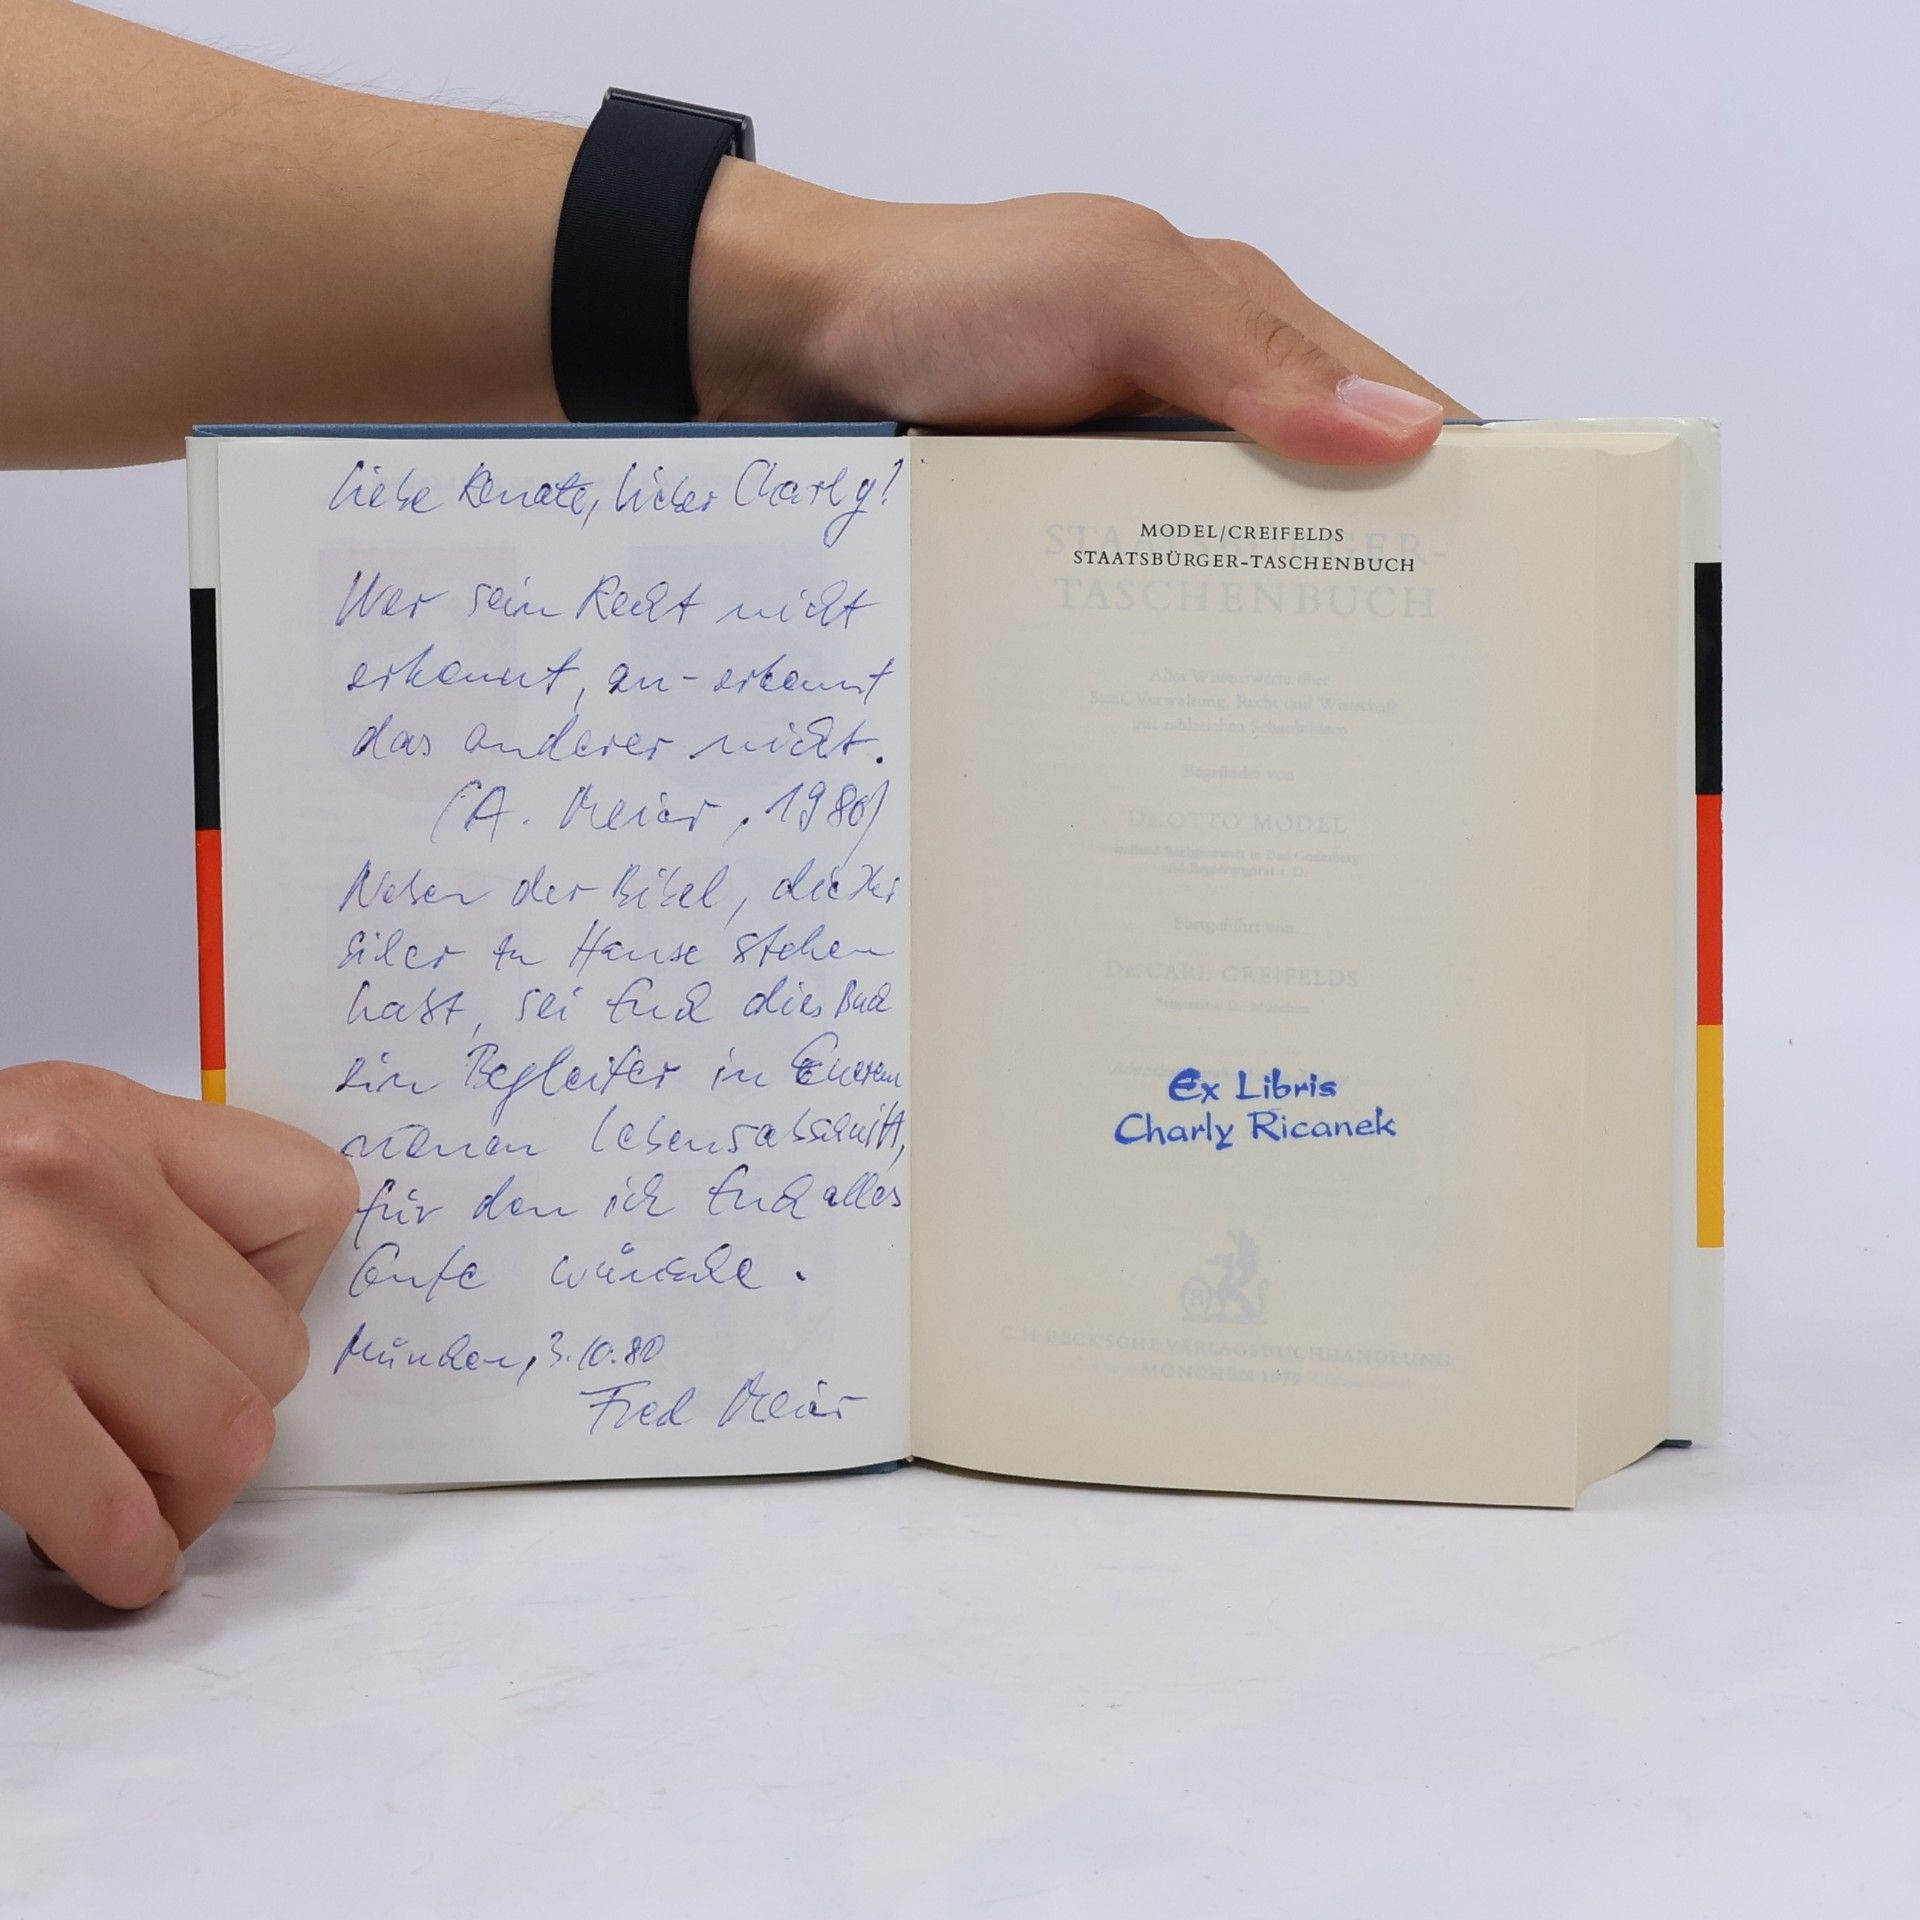 Liebe Renate, lieber Charly!
Wer sein Recht nicht
erkennt, an-erkennt
das anderer nicht.
(A. Meier, 1980)
Neben der Bibel, die Ihr
sicher zu Hause stehen
habt, sei Euch dies Buch
ein Begleiter in Eurem
neuen Lebensabschnitt,
für den ich Euch alles
Gute wünsche.
München, 3.10.80
Fred Meier
MODEL/CREIFELDS
STAATSBÜRGER-TASCHENBUCH
STAATSBÜRGER-
TASCHENBUCH
Alles Wissenswerte über
Staat, Verwaltung, Recht und Wirtschaft
mit zahlreichen Schaubildern
Begründet von
DR. OTTO MODEL
Fortgeführt von
DR. CARL CREIFELDS
Ex Libris
Charly Ricanek
C. H. BECK'SCHE VERLAGSBUCHHANDLUNG
MÜNCHEN